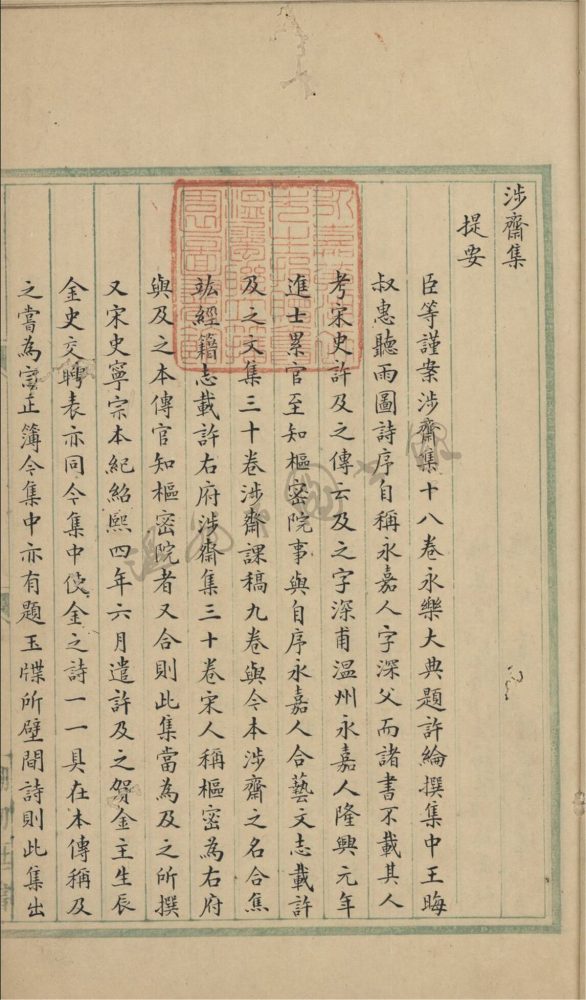 涉齋集
提要
臣等謹案涉齋集十八卷永樂大典題許綸撰集中王晦
叔惠聽雨圖詩序自稱永嘉人字深父而諸書不載其人
考宋史許及之傳云及之字深甫溫州永嘉人隆興元年
進士累官至知樞密院事與自序永嘉人合藝文志載許
及之文集三十卷涉齋課稿九卷與今本涉齋之名合焦
竑經籍志載許右府涉齋集三十卷宋人稱樞密為右府
與及之本傳官知樞密院者又合則此集當為及之所撰
又宋史寧宗本紀紹熙四年六月遣許及之賀金主生辰
金史交聘表亦同今集中使金之詩一一具在本傳稱及
之嘗為宗正簿今集中亦有題玉牒所壁間詩則此集出